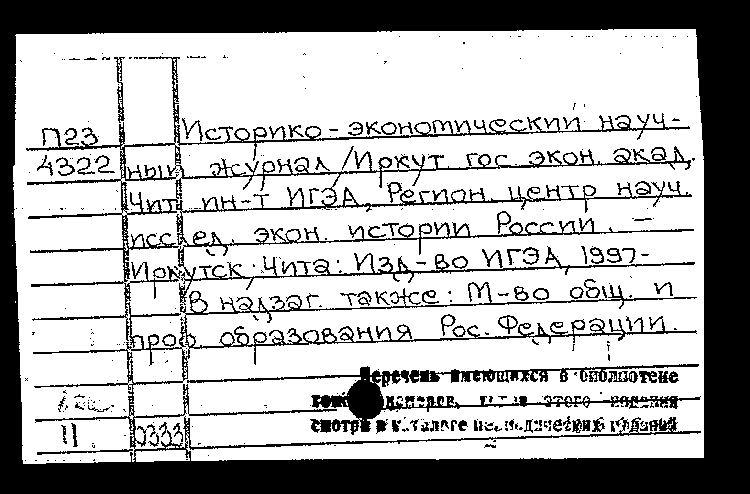 П23 Историко-экономический науч-
4322 ный журнал / Иркут. гос. экон. акад.
Чит. ин-т ИГЭА, Регион. центр науч.
исслед. экон. истории России. —
Иркутск; Чита: Изд-во ИГЭА, 1997-
В надзаг. также: М-во общ. и
проф. образования Рос. Федерации.
Перечень имеющихся в библиотеке
номеров, этого издания
смотри в каталоге периодических изданий
11 0333